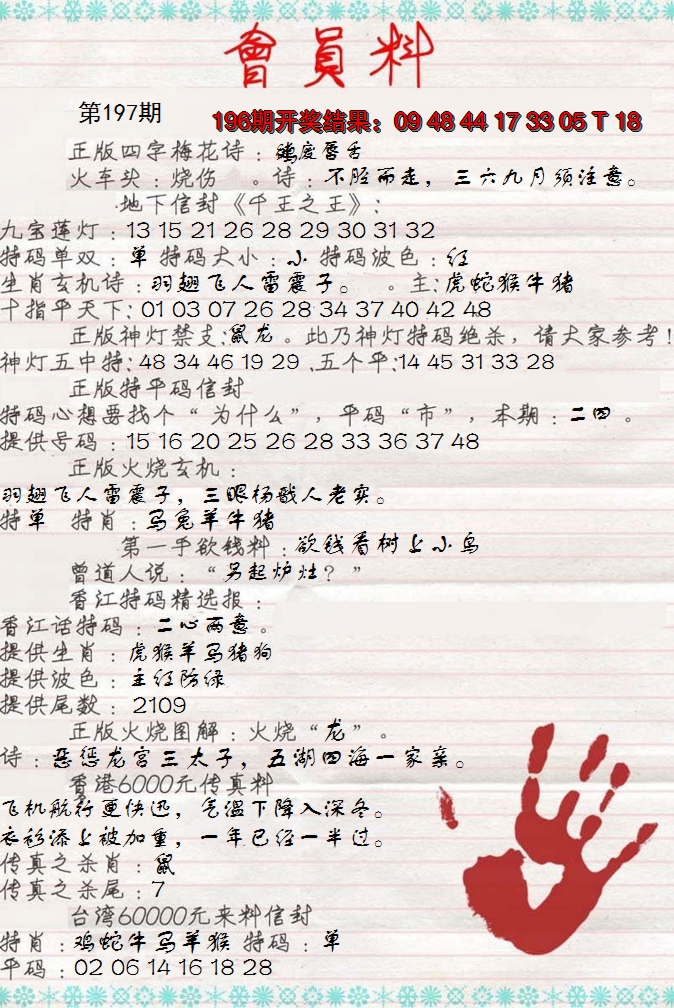 會員料
第197期
196期开奖结果：09 48 44 17 33 05 T 18
正版四字梅花诗：鹅度唇舌
火车头：烧伤 。诗：不胫而走，三六九月须注意。
地下信封《千王之王》：
九宝莲灯：13 15 21 26 28 29 30 31 32
特码单双：单 特码大小：小 特码波色：红
生肖玄机诗：羽翅飞人雷震子。 。主：虎蛇猴牛猪
十指平天下：01 03 07 26 28 34 37 40 42 48
正版神灯禁支：鼠龙。此乃神灯特码绝杀，请大家参考！
神灯五中特：48 34 46 19 29 .五个平：14 45 31 33 28
正版特平码信封
特码心想要找个“为什么”，平码“市”，本期：二四。
提供号码：15 16 20 25 26 28 33 36 37 48
正版火烧玄机：
羽翅飞人雷震子，三眼杨戬人老实。
特单 特肖：马兔羊牛猪
第一手欲钱料：欲钱看树上小鸟
曾道人说：“另起炉灶？”
香江特码精选报：
香江话特码：二心两意。
提供生肖：虎猴羊马猪狗
提供波色：主红防绿
提供尾数：2109
正版火烧图解：火烧“龙”。
诗：恶惩龙宫三太子，五湖四海一家亲。
香港6000元传真料
飞机航行更快迅，气温下降入深冬。
衣衫添上被加重，一年已经一半过。
传真之杀肖：鼠
传真之杀尾：7
台湾60000元来料信封
特肖：鸡蛇牛马羊猴 特码：单
平码：02 06 14 16 18 28